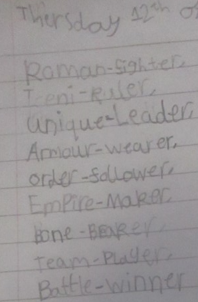 Thursday 12th of
Roman-Fighter,
Teeni-Ruler,
Unique-Leader,
Armour-wearer,
order-follower,
Empire-Maker,
Bone-Beaker,
Team-Player,
Battle-winner